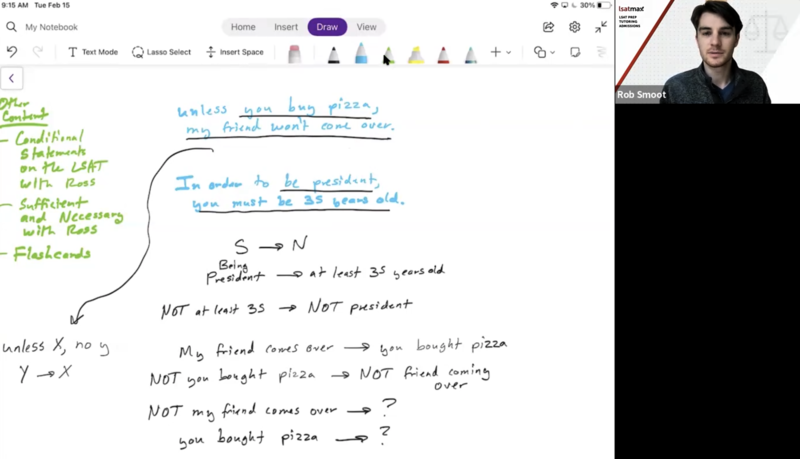 9:15 AM Tue Feb 15
30%
My Notebook
Home Insert Draw View
Text Mode Lasso Select Insert Space
Other
Content
- Conditional
Statements
on the LSAT
with Ross
- Sufficient
and Necessary
with Ross
- Flashcards
unless you buy pizza,
my friend won't come over.
In order to be president,
you must be 35 years old.
S → N
Being
President → at least 35 years old
NOT at least 35 → NOT president
unless X, no y
Y → X
My friend comes over → you bought pizza
NOT you bought pizza → NOT friend coming
over
NOT my friend comes over → ?
you bought pizza → ?
lsatmax
LSAT PREP
TUTORING
ADMISSIONS
Rob Smoot